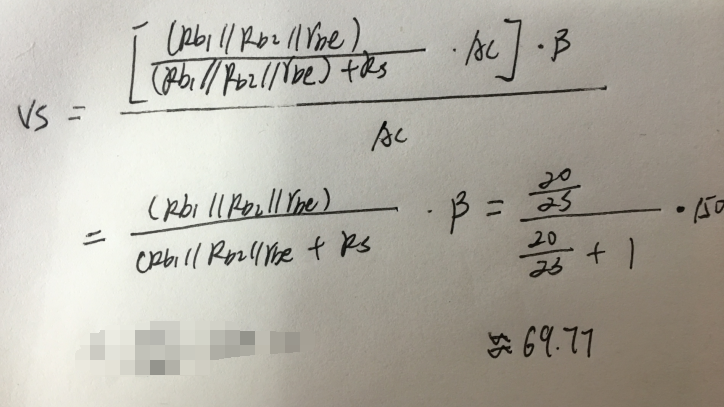 [(Rb1//Rb2//rbe)
(Rb1//Rb2//rbe)+Rs · Ac] · β
VS =
Ac
= (Rb1//Rb2//rbe)
(Rb1//Rb2//rbe + Rs · β = 20
23
20
23 + 1 · 150
≈ 69.77